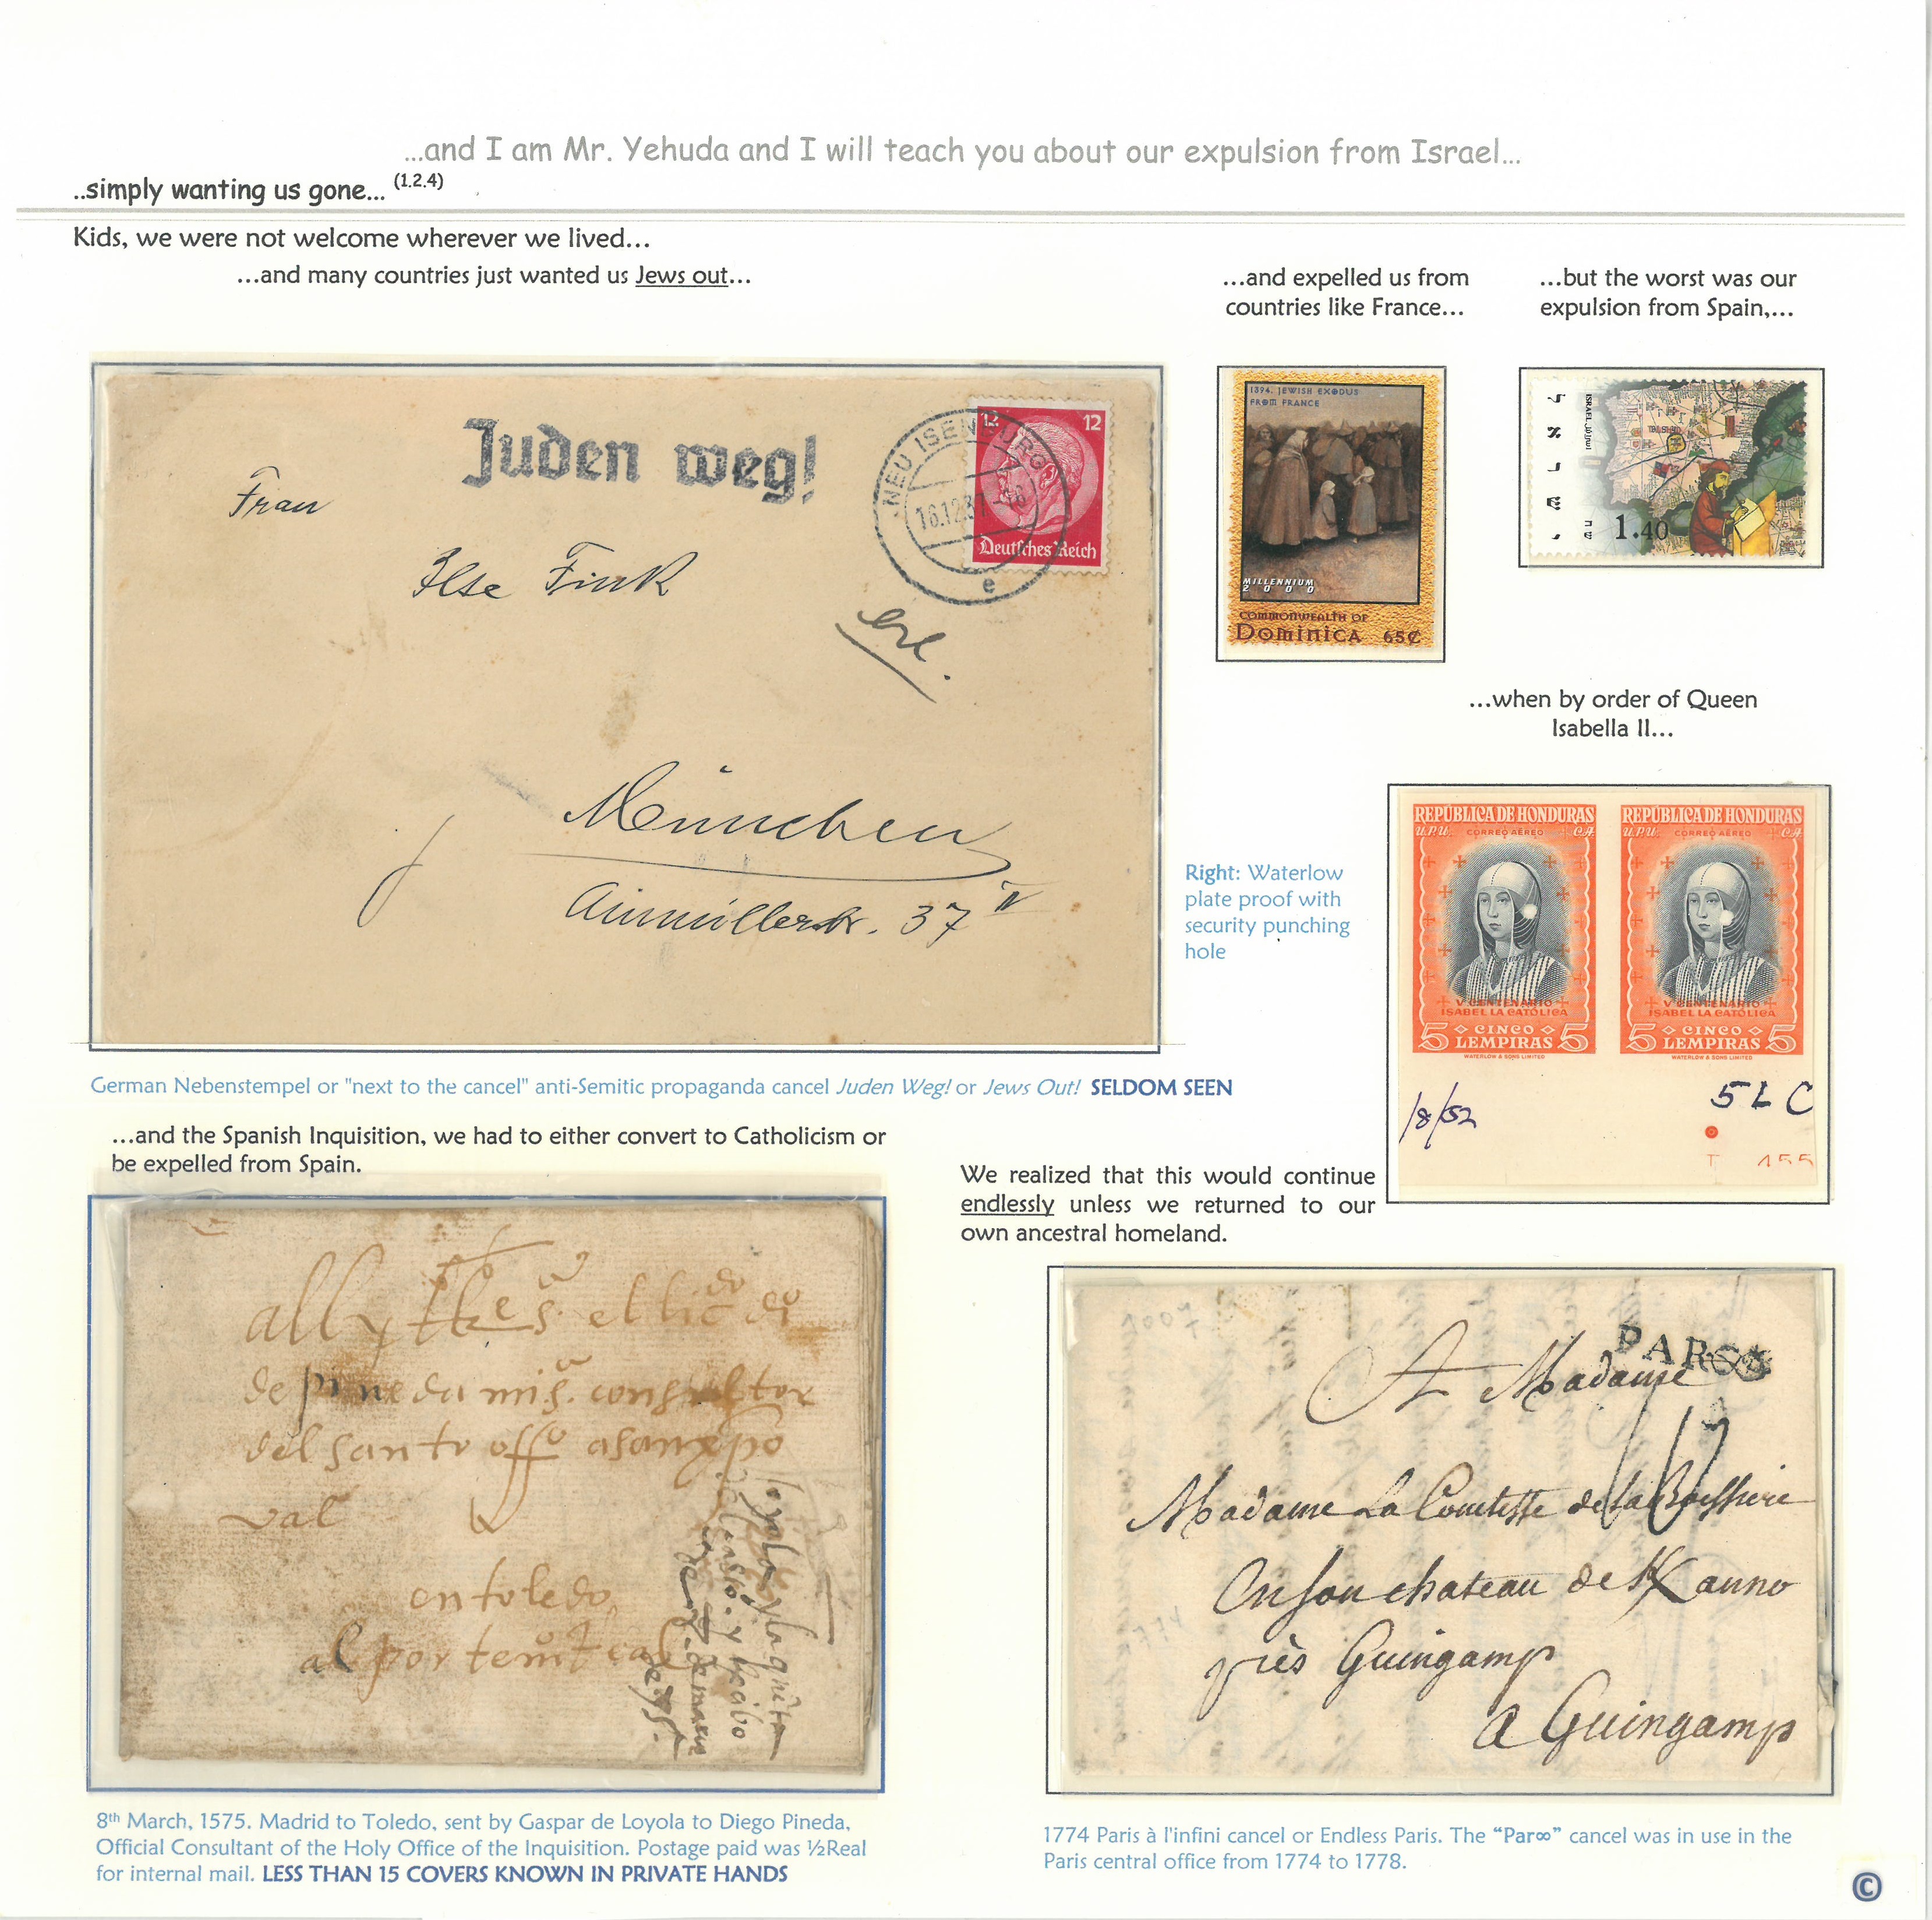 ...and I am Mr. Yehuda and I will teach you about our expulsion from Israel...
..simply wanting us gone... (1.2.4)
Kids, we were not welcome wherever we lived...
...and many countries just wanted us Jews out...
...and expelled us from
countries like France...
...but the worst was our
expulsion from Spain,...
Juden weg!
Frau
Ilse Fink
erl.
München
Ainmüllerstr. 37 IV
NEU ISENBURG
e
12 12
Deutsches Reich
1394, JEWISH EXODUS
FROM FRANCE
MILLENNIUM
2000
COMMONWEALTH OF
DOMINICA 65¢
ישראל
ISRAEL اسرائيل
1.40
...when by order of Queen
Isabella II...
Right: Waterlow
plate proof with
security punching
hole
REPÚBLICA DE HONDURAS
U.P.U. CORREO AÉREO C.A.
V CENTENARIO
ISABEL LA CATÓLICA
5 CINCO 5
LEMPIRAS
WATERLOW & SONS LIMITED
REPÚBLICA DE HONDURAS
U.P.U. CORREO AÉREO C.A.
V CENTENARIO
ISABEL LA CATÓLICA
5 CINCO 5
LEMPIRAS
WATERLOW & SONS LIMITED
/8/52
5 L C
German Nebenstempel or "next to the cancel" anti-Semitic propaganda cancel Juden Weg! or Jews Out! SELDOM SEEN
...and the Spanish Inquisition, we had to either convert to Catholicism or
be expelled from Spain.
We realized that this would continue
endlessly unless we returned to our
own ancestral homeland.
de pineda mi s. consultor
del santo offo
en toledo
PAR∞
A Madame
17
Madame La Comtesse de la
En son chateau de
près Guingamp
a Guingamp
8th March, 1575. Madrid to Toledo, sent by Gaspar de Loyola to Diego Pineda,
Official Consultant of the Holy Office of the Inquisition. Postage paid was ½Real
for internal mail. LESS THAN 15 COVERS KNOWN IN PRIVATE HANDS
1774 Paris à l'infini cancel or Endless Paris. The “Par∞” cancel was in use in the
Paris central office from 1774 to 1778.
©